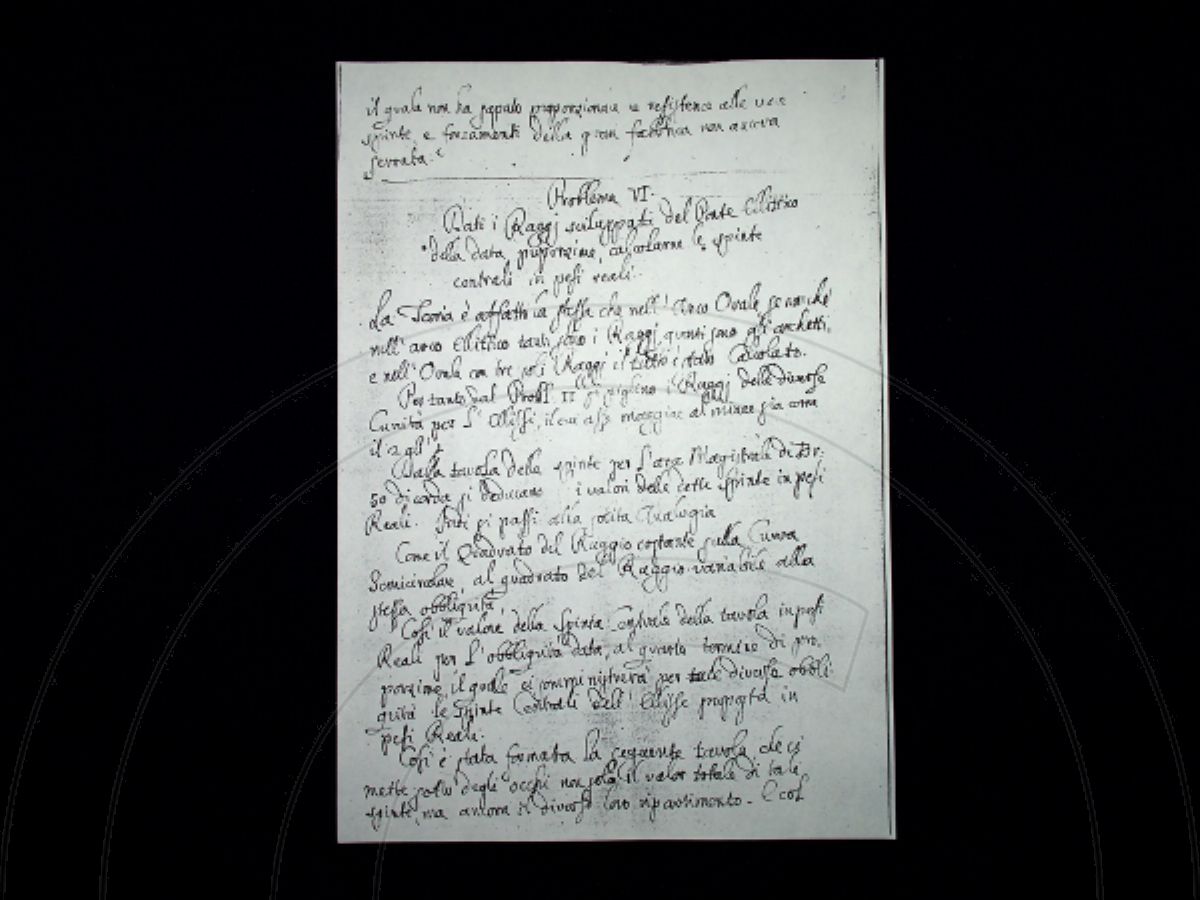 il quale non ha saputo proporzionare le resistenze alle
spinte, e forzamenti della gran fabbrica non ancora
serrata.
Problema VI.
Dati i Raggj sviluppati del Ponte Ellittico
della data proporzione, calcolarne le spinte
centrali in pesi reali.
La Teoria è affatto la stessa che nell' Arco Ovale, se non chè
nell' arco Ellittico tanti sono i Raggj quanti sono gli archetti,
e nell' Ovale con tre soli Raggj il tutto è stato Calcolato.
Per tanto dal Probl. II si piglino i Raggj delle diverse
Curvità per L' Ellissi, il cui asse maggiore al minore sia come
il 2 all'
Dalla tavola delle spinte per l'arco Magistrale di Br:
50 di corda si deducano i valori delle dette spinte in pesi
Reali. Indi si passi alla solita Analogia
Come il Quadrato del Raggio costante sulla Curva
Semicircolare, al quadrato del Raggio variabile alla
stessa obbliquità,
Così il valore della spinta Centrale della tavola in pesi
Reali per L'obbliquità data, al quarto termine di pro-
porzione, il quale ci somministrerà per tale diverse obbli-
quità le spinte Centrali dell' Ellisse proposta in
pesi Reali.
Così è stata formata la seguente tavola che ci
mette sotto degli occhi non solo il valor totale di tale
spinte, ma ancora il diverso loro ripartimento. E così